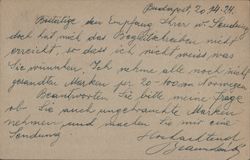 Budapest, 20.14.24.
Bestätige den Empfang Ihrer w. Sendung
doch hat mich das Begleitschreiben nicht
erreicht, so dass ich nicht weiss, was
Sie wünschen. Ich nehme alle noch nicht
gesandten Marken zu 20-
Beantworten Sie bitte meine Frage
ob Sie auch ungebrauchte Marken
nehmen und machen Sie mir eine
Sendung.
Hochachtend